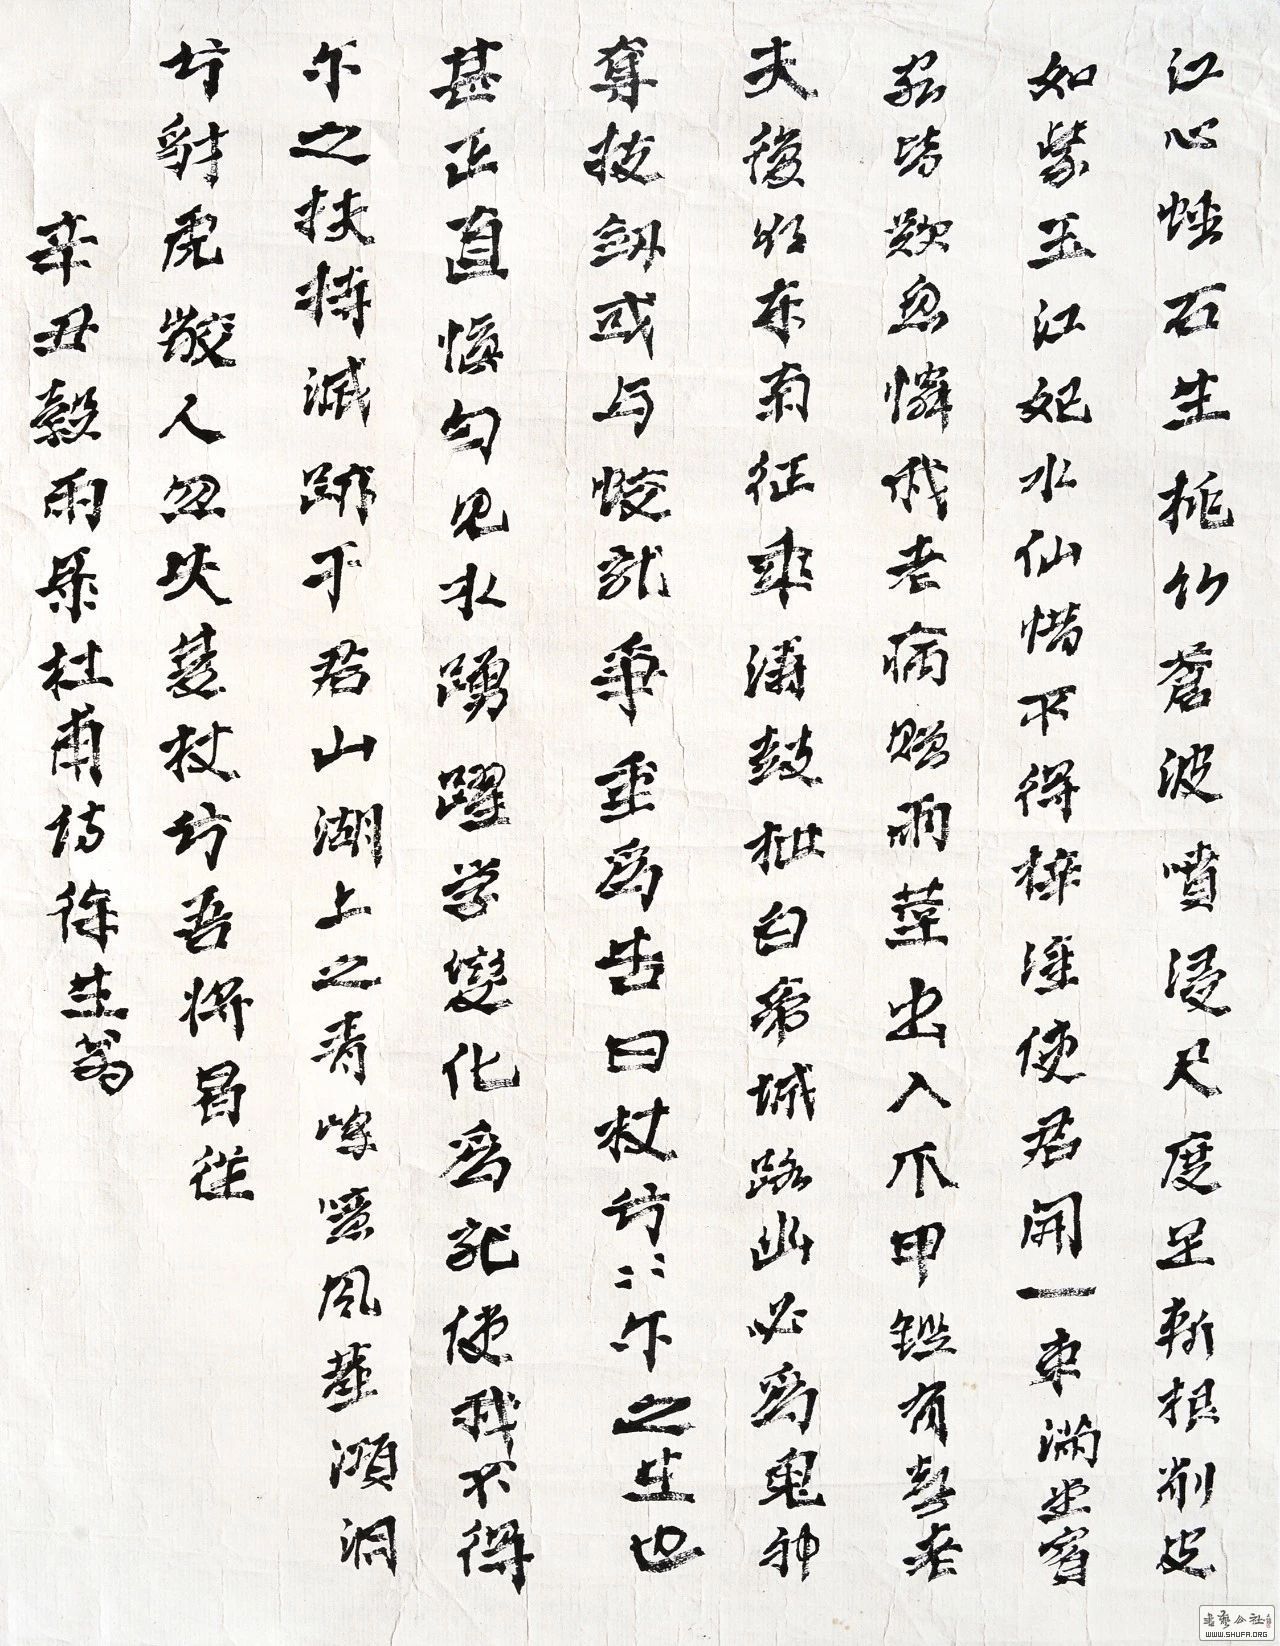 江心蟠石生桃竹蒼波噴浸尺度足斬根削皮
如紫玉江妃水仙惜不得梓潼使君開一束滿堂賓
客皆歎息憐我老病贈兩莖出入爪甲鏗有聲老
夫復欲东南征乘濤鼓枻白帝城路幽必為鬼神
奪拔劔或与蛟龍爭重為告曰杖兮〻〻尔之生也
甚正直慎勿見水踴躍学變化為龍使我不得
尔之扶持滅跡于君山湖上之青峰噫風塵澒洞
兮豺虎齩人忽失雙杖兮吾將曷從
辛丑穀雨录杜甫詩徐生翁
书艺公社
WWW.SHUFA.ORG